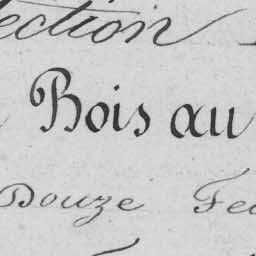 ection
Bois au
Douze Feu